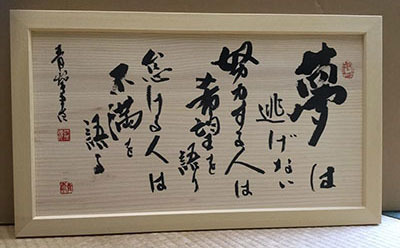 夢は
逃げない
努力する人は
希望を
語り
怠ける人は
不満を
語る